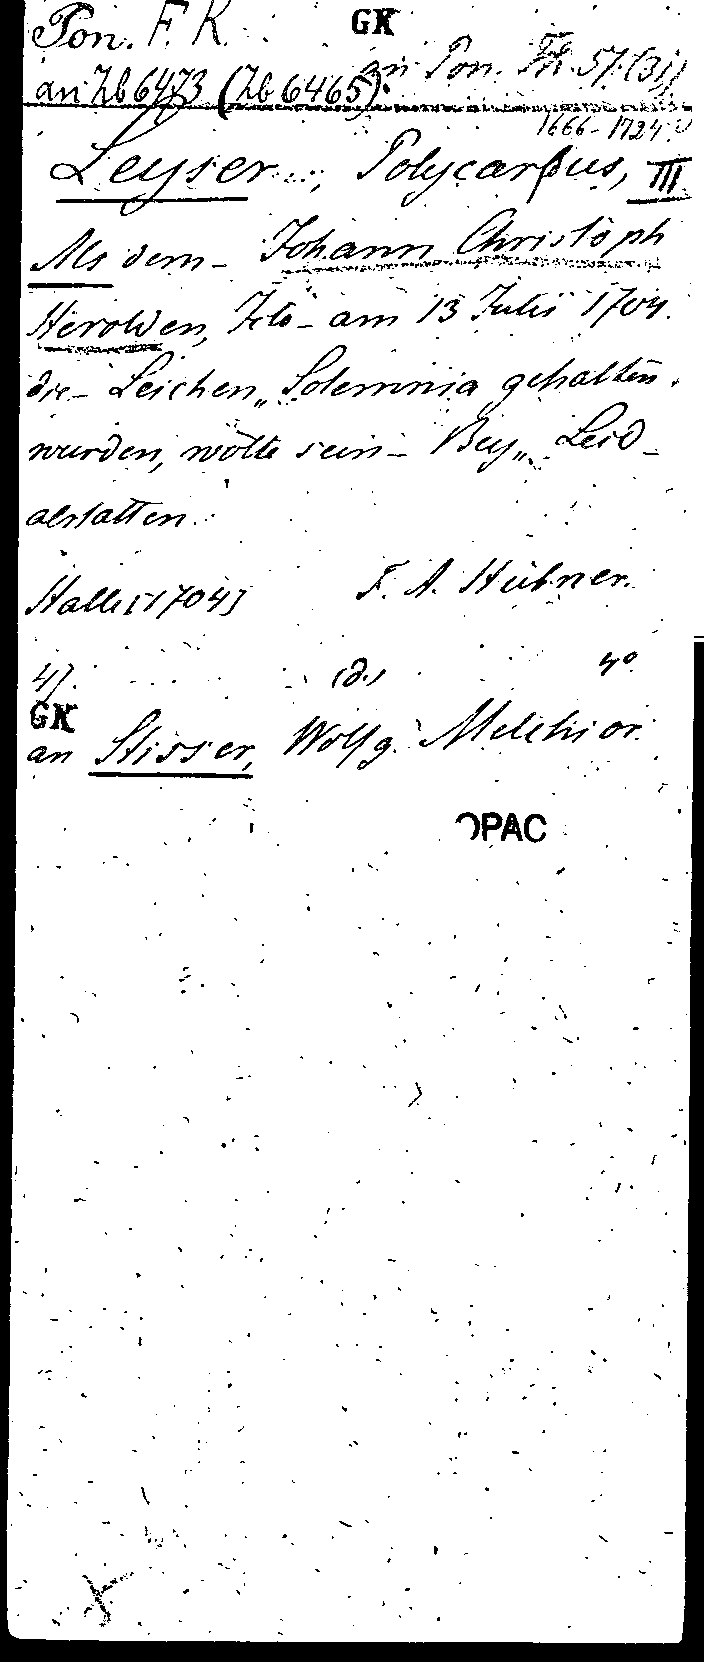 Pon. F. K. GK
an Zb 6473 (Zb 6465). an Pon. Th. 57. (31)
1666-1724
Leyser, Polycarpus, III
Als dem - Johann Christoph
Herolden, Icto - am 13 Julii 1704.
die - Leichen„Solemnia gehalten
wurden, wolte sein - Bey„Leid -
abstatten.
Halle [1704] F. A. Hübner.
(d.) 4°
GK
an Stisser, Wolfg. Melchior.
OPAC